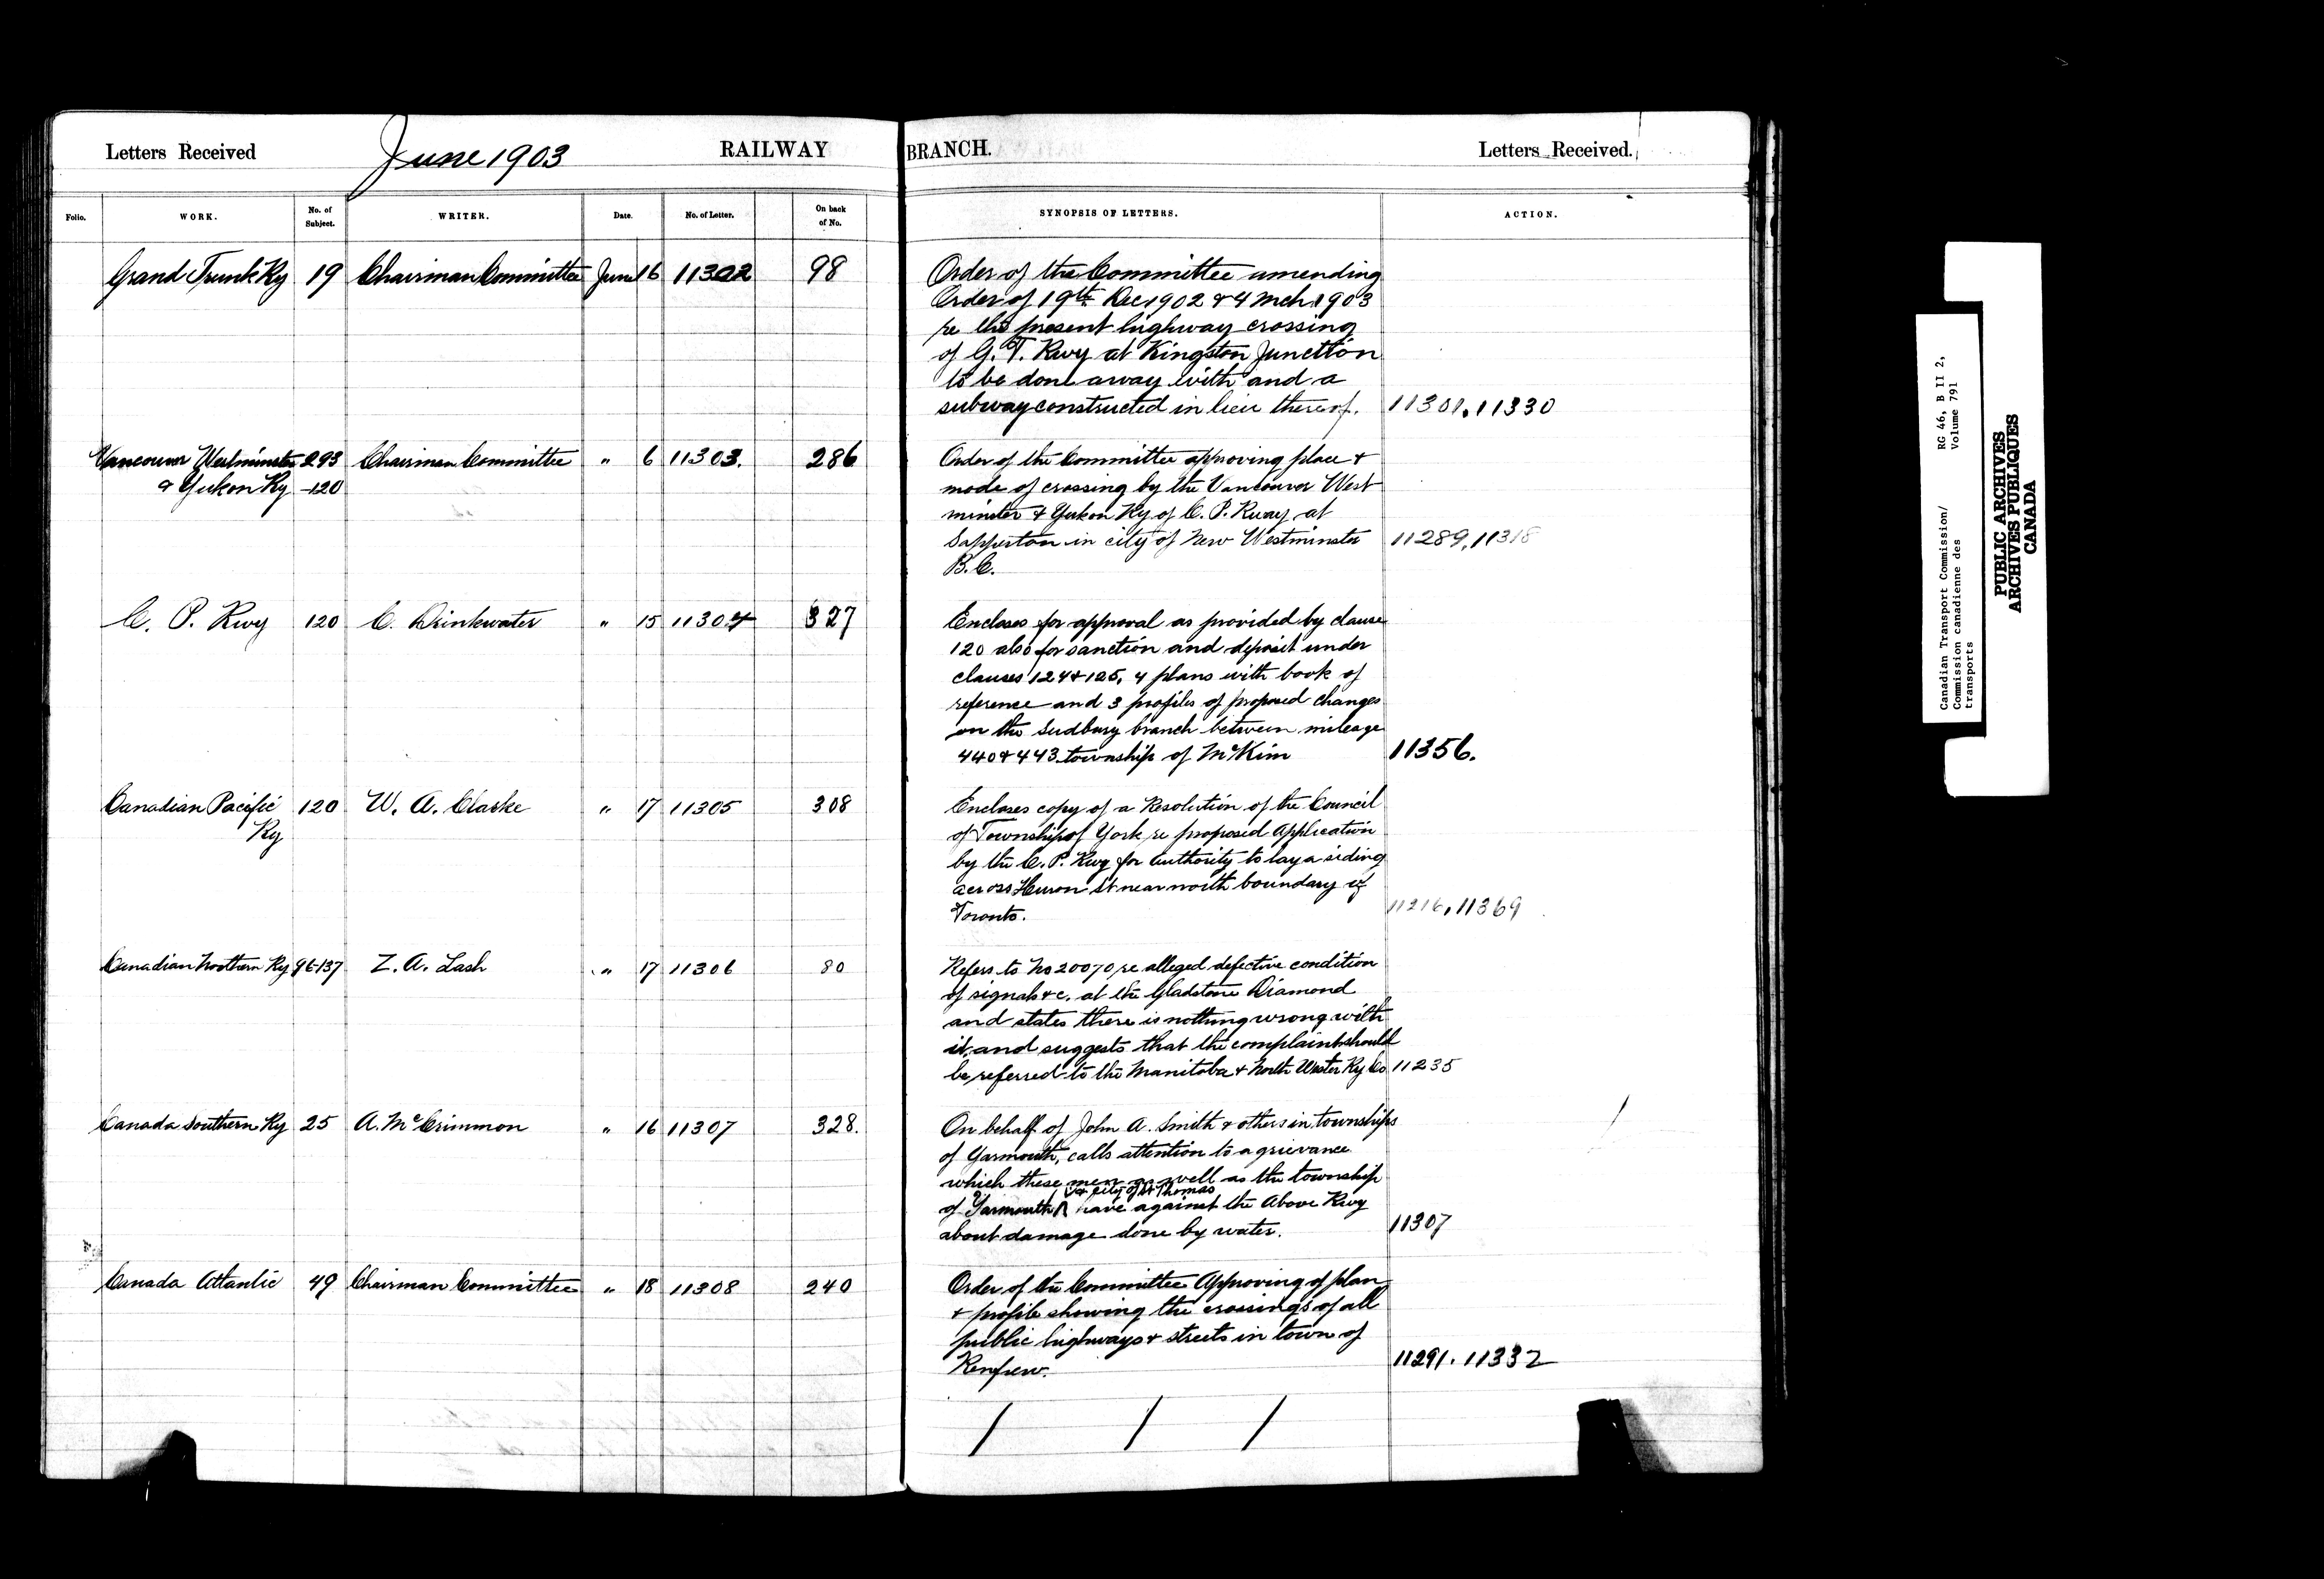 Letters Received June 1903 RAILWAY BRANCH. Letters Received.
Folio. WORK. No. of Subject. WRITER. Date. No. of Letter. On back of No. SYNOPSIS OF LETTERS. ACTION.
Grand Trunk Ry 19 Chairman Committee June 16 11302 98 Order of the Committee amending
Order of 19th Dec 1902 & 4 Mch 1903
re the present highway crossing
of G. T. Rwy at Kingston Junction
to be done away with and a
subway constructed in lieu thereof. 11301, 11330
Vancouver Westminster 293 Chairman Committee " 6 11303. 286 Order of the Committee approving place &
& Yukon Ry -120 mode of crossing by the Vancouver West
minster & Yukon Ry of C. P. Rway at
Sapperton in city of New Westminster 11289, 11318
B. C.
C. P. Rwy 120 C. Drinkwater " 15 11304 327 Encloses for approval as provided by clause
120 also for sanction and deposit under
clauses 124 & 125, 4 plans with book of
reference and 3 profiles of proposed changes
on the Sudbury branch between mileage
440 & 443 township of McKim 11356.
Canadian Pacific 120 W. A. Clarke " 17 11305 308 Encloses copy of a Resolution of the Council
Ry of Township of York re proposed Application
by the C. P. Rwy for authority to lay a siding
across Huron St near north boundary of
Toronto. 11216, 11369
Canadian Northern Ry 96-137 Z. A. Lash " 17 11306 80 Refers to No 20070 re alleged defective condition
of signals &c. at the Gladstone Diamond
and states there is nothing wrong with
it, and suggests that the complaint should
be referred to the Manitoba & North Wester Ry Co 11235
Canada Southern Ry 25 A. McCrimmon " 16 11307 328. On behalf of John A. Smith & others in townships
of Yarmouth, calls attention to a grievance
which these men as well as the township
& city of St Thomas
of Yarmouth have against the Above Rwy
about damage done by water. 11307
Canada Atlantic 49 Chairman Committee " 18 11308 240 Order of the Committee Approving of plan
& profile showing the crossings of all
public highways & streets in town of
Renfrew. 11291. 11332
Canadian Transport Commission/ RG 46, B II 2,
Commission canadienne des Volume 791
transports
PUBLIC ARCHIVES
ARCHIVES PUBLIQUES
CANADA